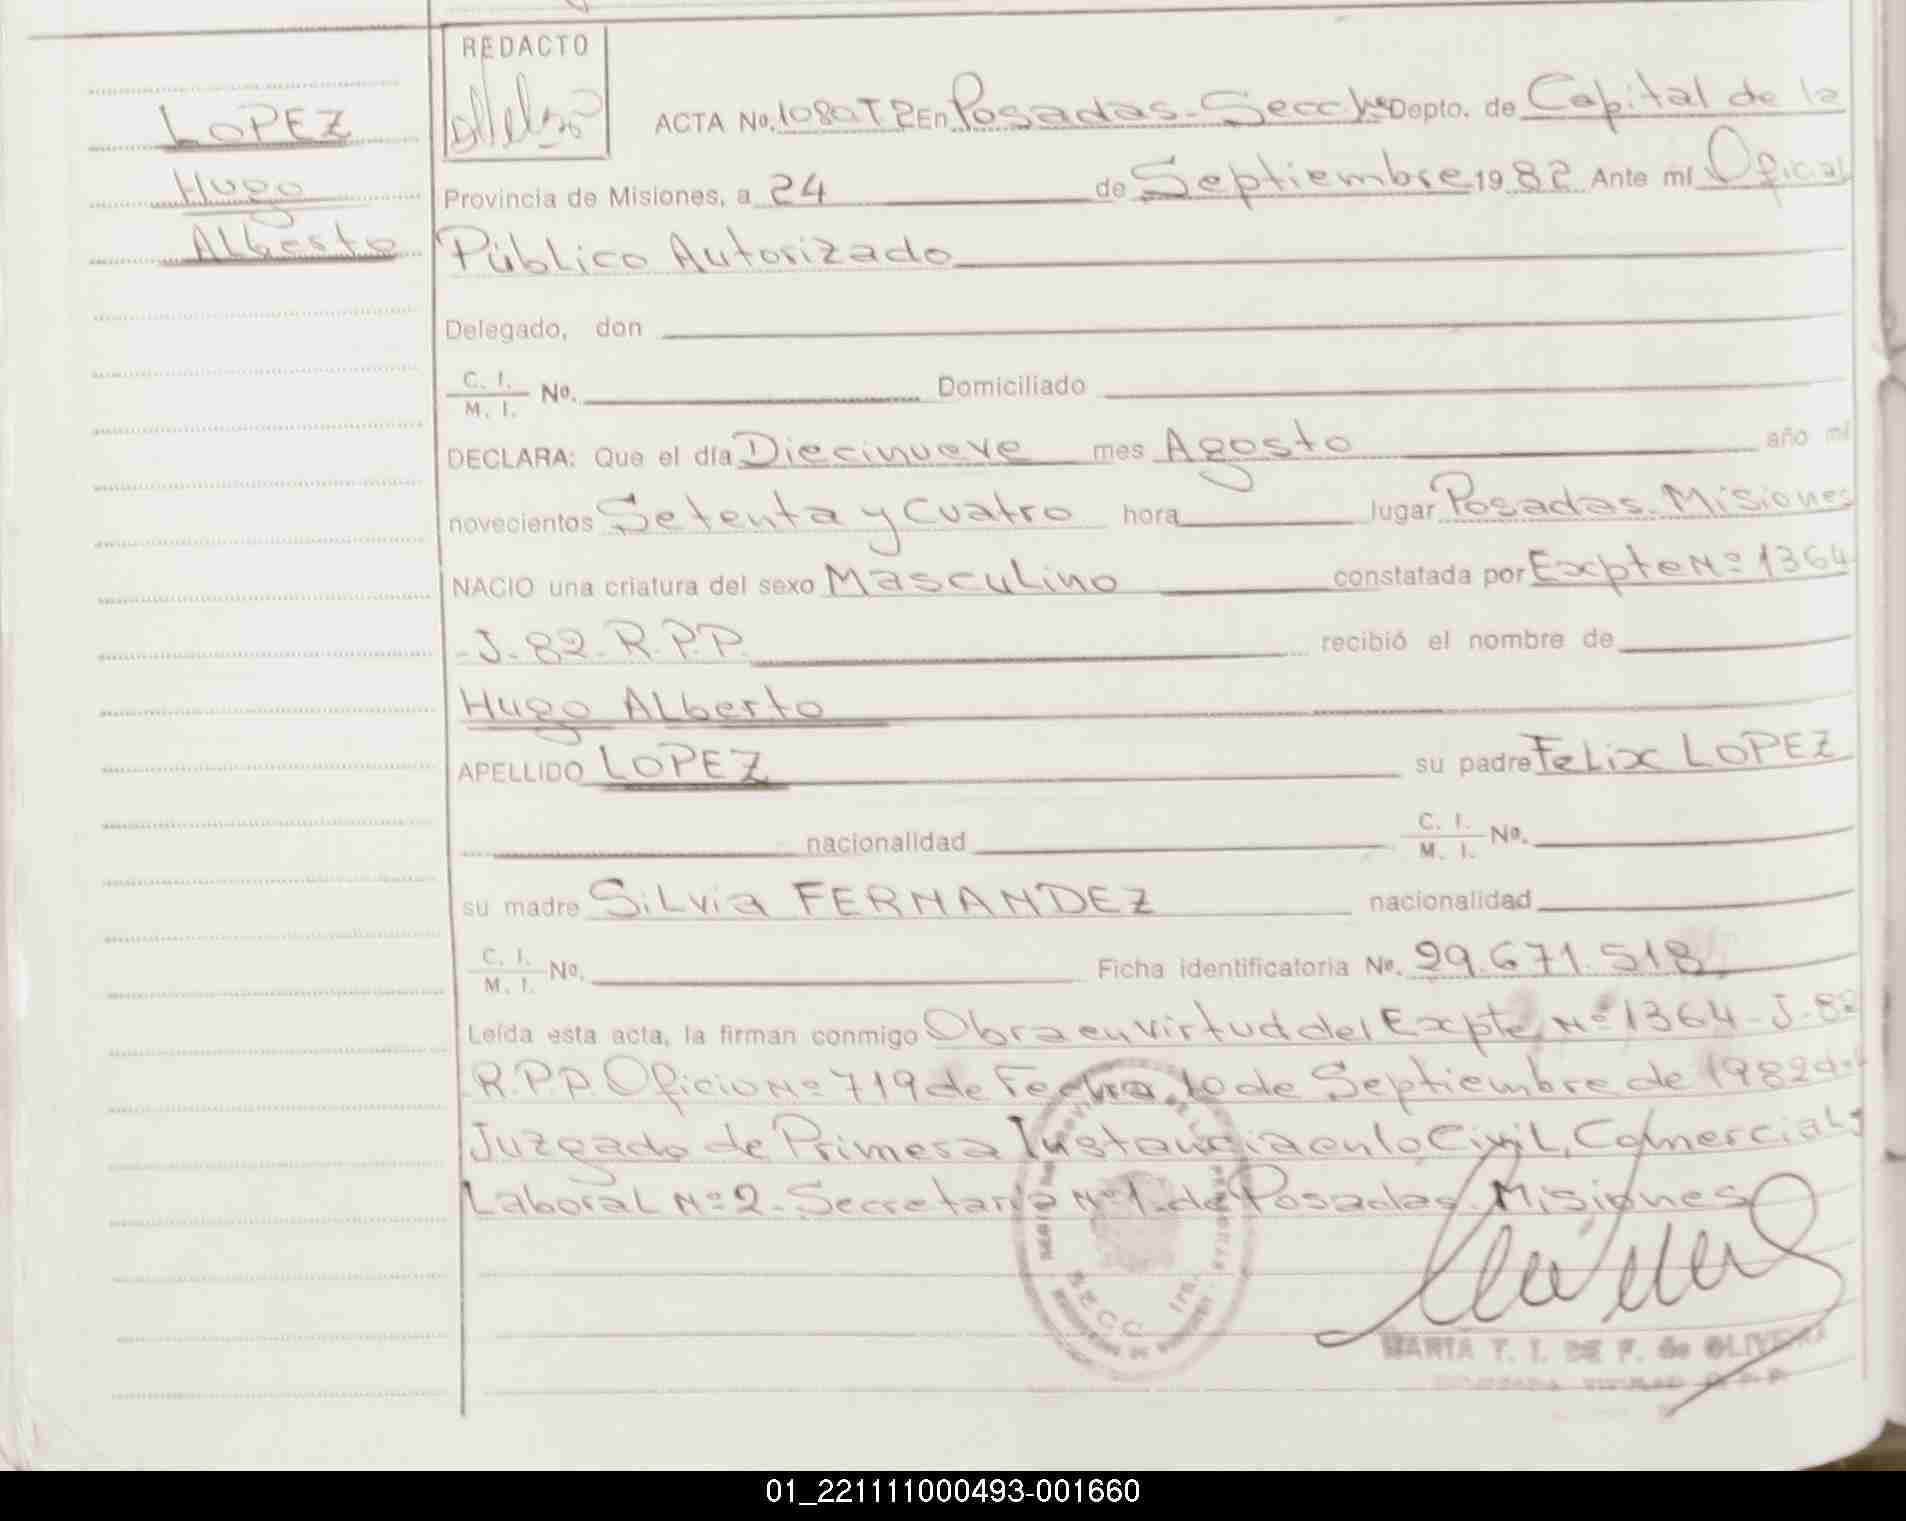 LOPEZ
Hugo
Alberto
REDACTO
ACTA No. 1080 T 2 En Posadas - Secc 1ª Depto. de Capital de la
Provincia de Misiones, a 24 de Septiembre 1982 Ante mí Oficial
Público Autorizado
Delegado, don
C. I. / M. I. No. Domiciliado
DECLARA: Que el día Diecinueve mes Agosto año mil
novecientos Setenta y Cuatro hora lugar Posadas. Misiones
NACIO una criatura del sexo Masculino constatada por Expte Nº 1364
-J-82-R.P.P. recibió el nombre de
Hugo Alberto
APELLIDO LOPEZ su padre Felix LOPEZ
nacionalidad C. I. / M. I. No.
su madre Silvia FERNANDEZ nacionalidad
C. I. / M. I. No. Ficha identificatoria No. 29.671.518
Leída esta acta, la firman conmigo Obra en virtud del Expte Nº 1364-J-82
R.P.P. Oficio Nº 719 de Fecha 10 de Septiembre de 1982 del
Juzgado de Primera Instancia en lo Civil, Comercial y
Laboral Nº 2 - Secretaría Nº 1 - de Posadas. Misiones
SECC 1ra.
MARIA T. I. DE F. de OLIVERA
01_221111000493-001660